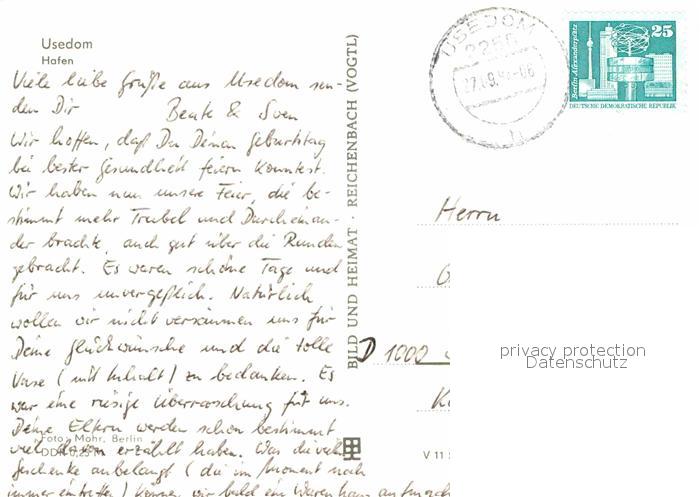 Usedom
Hafen
Viele liebe Grüße aus Usedom sen-
den Dir Beate & Sven
Wir hoffen, daß Du Deinen Geburtstag
bei bester Gesundheit feiern konntest.
Wir haben nun unsere Feier, die be-
stimmt mehr Trubel und Durcheinan-
der brachte, auch gut über die Runden
gebracht. Es waren schöne Tage und
für uns unvergeßlich. Natürlich
wollen wir nicht versäumen uns für
Deine Glückwünsche und die tolle
Vase (mit Inhalt) zu bedanken. Es
war eine riesige Überraschung für uns.
Deine Eltern werden schon bestimmt
viel davon erzählt haben. Was die vielen
Geschenke anbelangt (die im Moment noch
immer eintreffen) können wir bald ein Warenhaus aufmach
Foto: Mohr, Berlin
BILD UND HEIMAT · REICHENBACH (VOGTL)
USEDOM
2255
25
Berlin, Alexanderplatz
DEUTSCHE DEMOKRATISCHE REPUBLIK
Herrn
D 1000
V 11
privacy protection
Datenschutz